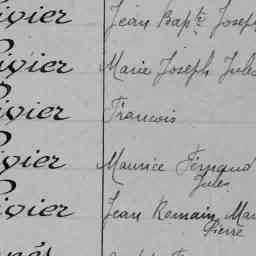 ivier Jean Bapte Joseph
ivier Marie Joseph Jules
ivier Francois
ivier Maurice Fernand
Jules
ivier Jean Romain Mau
Pierre